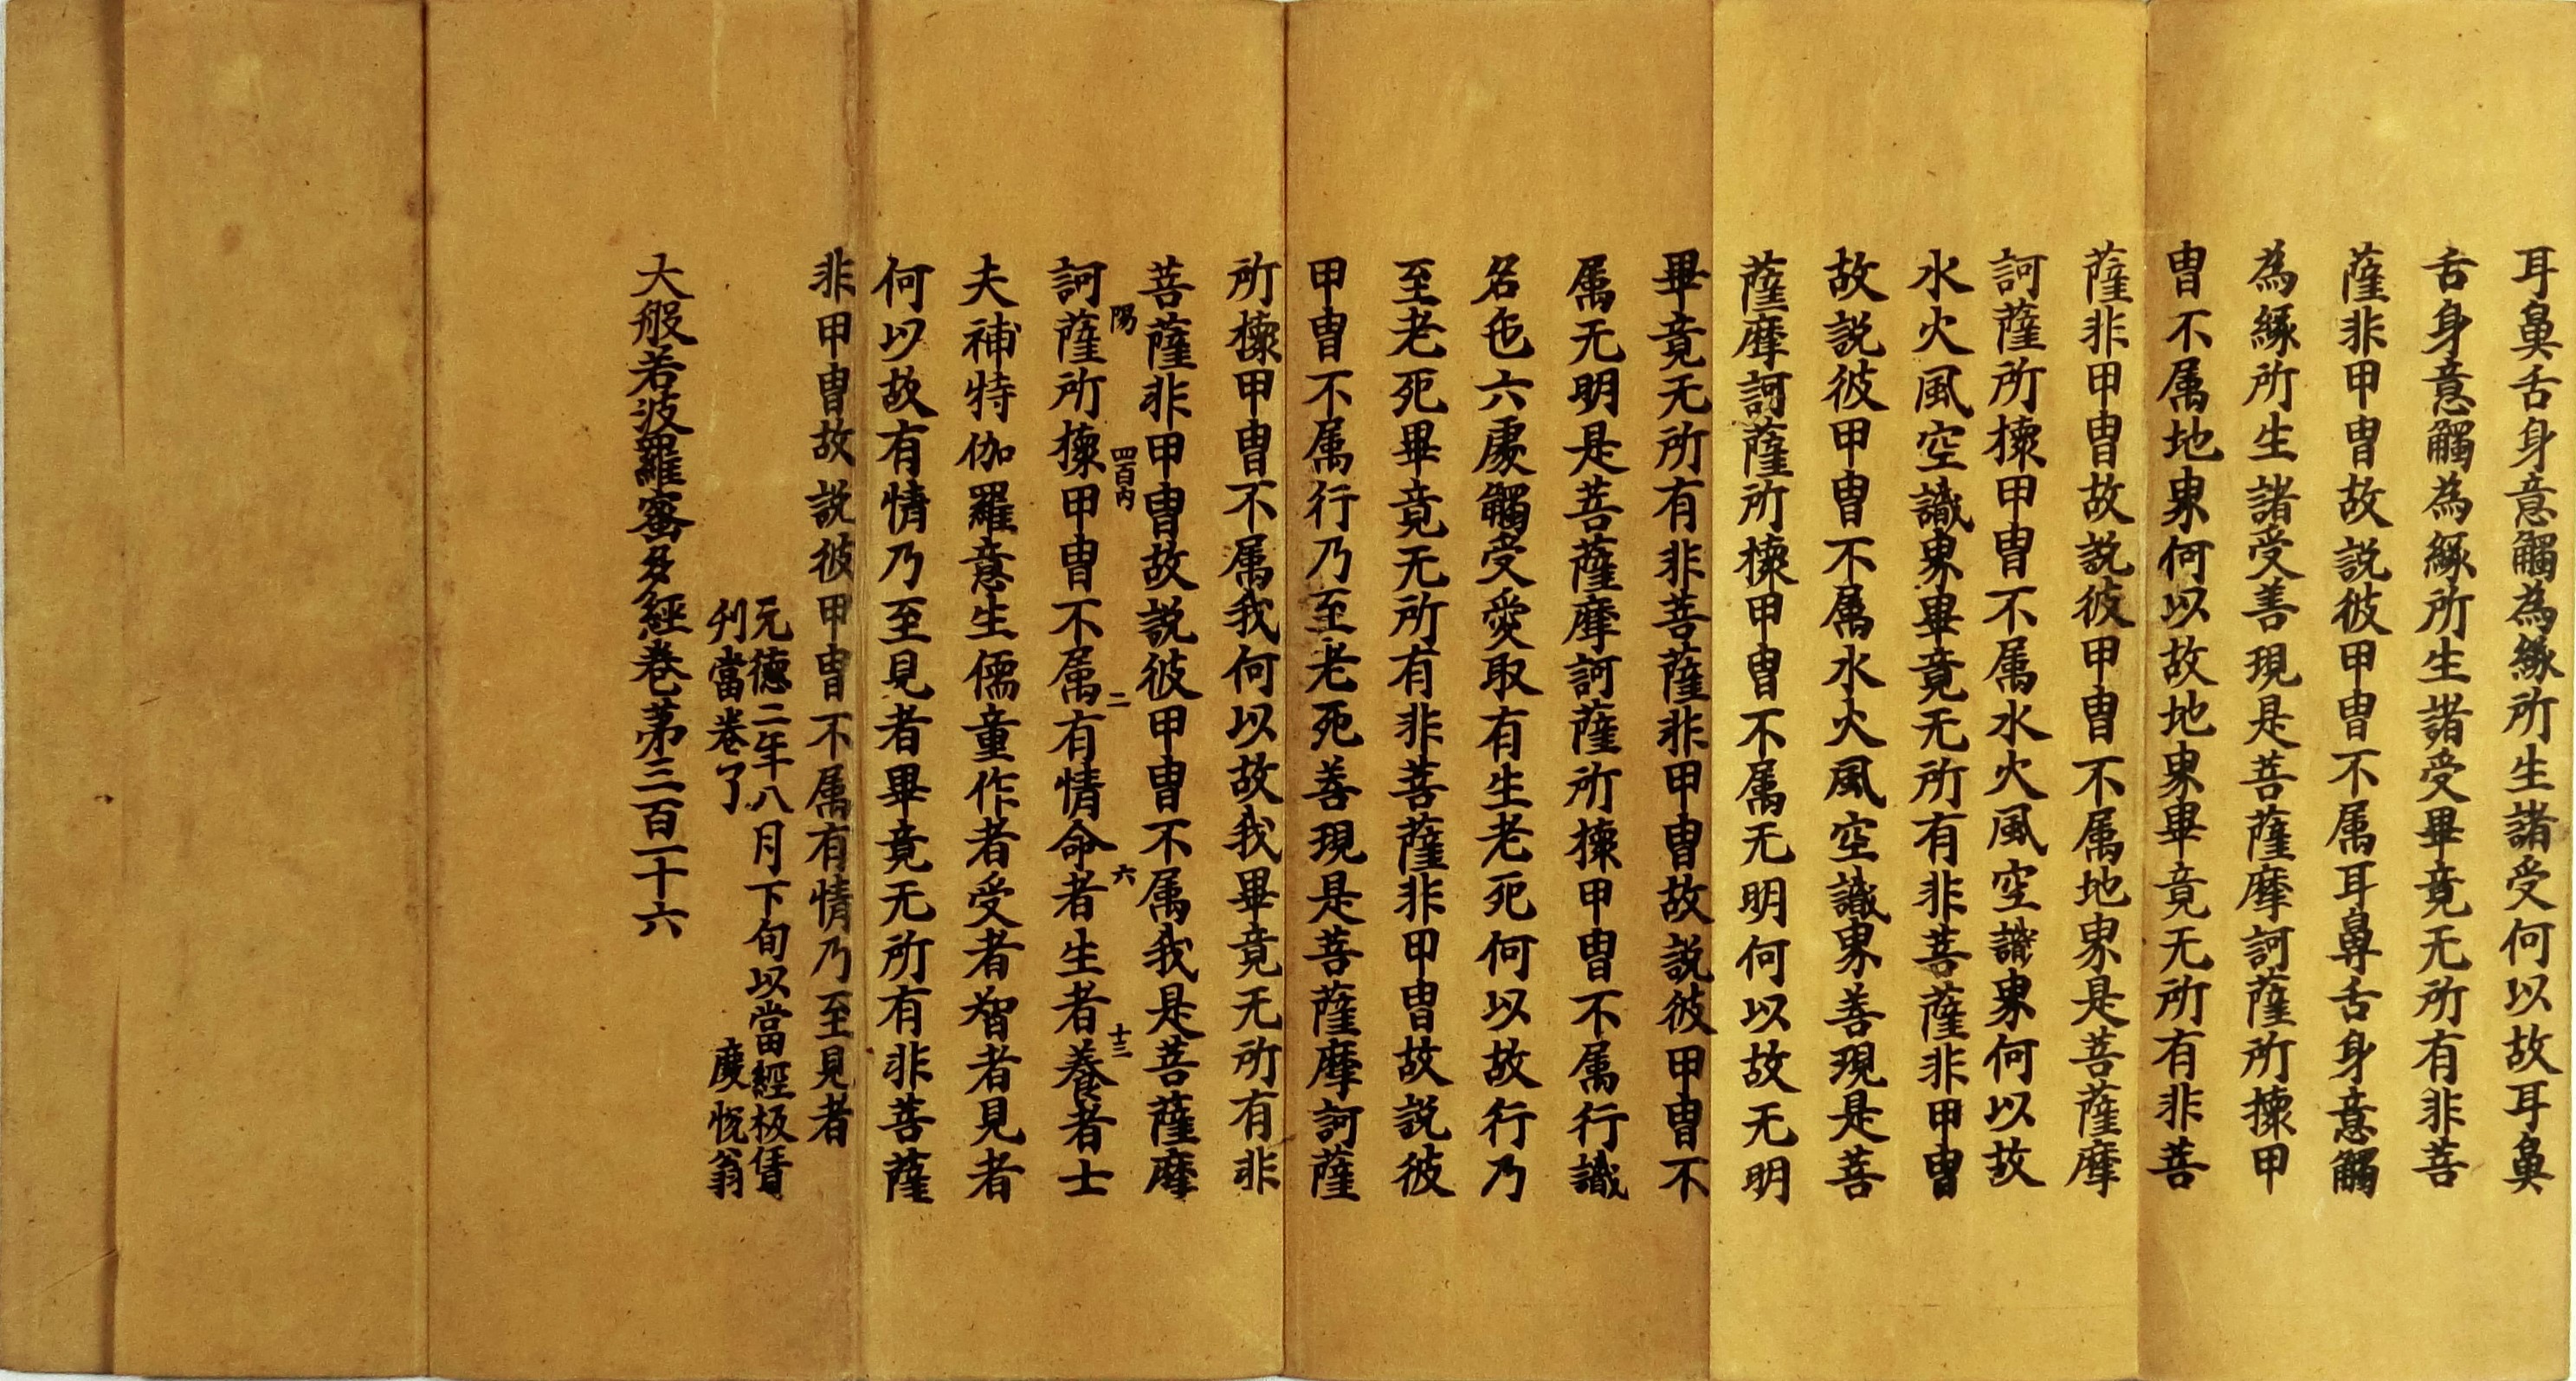 耳鼻舌身意觸為緣所生諸受何以故耳鼻
舌身意觸為緣所生諸受畢竟无所有非菩
薩非甲冑故説彼甲冑不属耳鼻舌身意觸
為緣所生諸受善現是菩薩摩訶薩所擐甲
冑不属地界何以故地界畢竟无所有非菩
薩非甲冑故説彼甲冑不属地界是菩薩摩
訶薩所擐甲冑不属水火風空識界何以故
水火風空識界畢竟无所有非菩薩非甲冑
故説彼甲冑不属水火風空識界善現是菩
薩摩訶薩所擐甲冑不属无明何以故无明
畢竟无所有非菩薩非甲冑故説彼甲冑不
属无明是菩薩摩訶薩所擐甲冑不属行識
名色六處觸受愛取有生老死何以故行乃
至老死畢竟无所有非菩薩非甲冑故説彼
甲冑不属行乃至老死善現是菩薩摩訶薩
所擐甲冑不属我何以故我畢竟无所有非
菩薩非甲冑故説彼甲冑不属我是菩薩摩
陽 四百内 二 六 十三
訶薩所擐甲冑不属有情命者生者養者士
夫補特伽羅意生儒童作者受者智者見者
何以故有情乃至見者畢竟无所有非菩薩
非甲冑故説彼甲冑不属有情乃至見者
元德二年八月下旬以當經板賃
刋當卷了 慶恱翁
大般若波羅蜜多經卷苐三百一十六